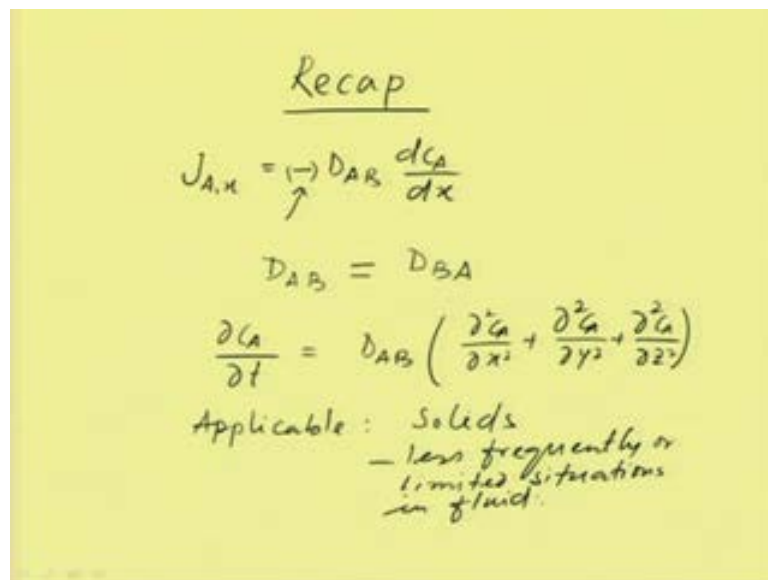 Recap
J_{A,x} = (-) D_{AB} dC_A/dx
↑
D_{AB} = D_{BA}
∂C_A/∂t = D_{AB} (∂²C_A/∂x² + ∂²C_A/∂y² + ∂²C_A/∂z²)
Applicable : Solids
— less frequently or
limited situations
in fluid.